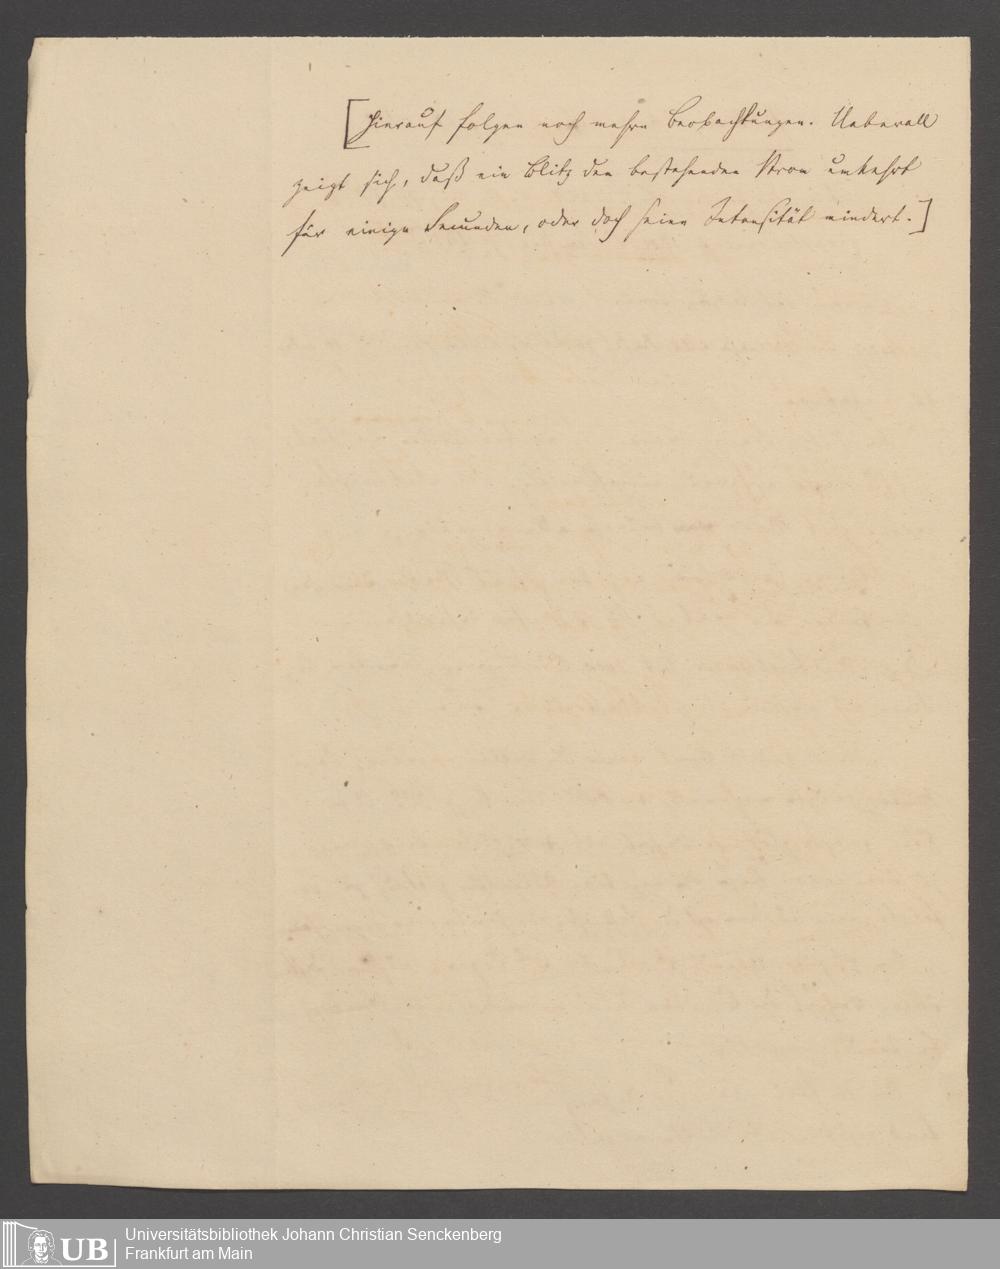 [Hierauf folgen noch mehre Beobachtungen. Ueberall
zeigt sich, daß ein Blitz den bestehenden Strom umkehrt
für einige Secunden, oder doch seine Intensität mindert.]
UB
Universitätsbibliothek Johann Christian Senckenberg
Frankfurt am Main